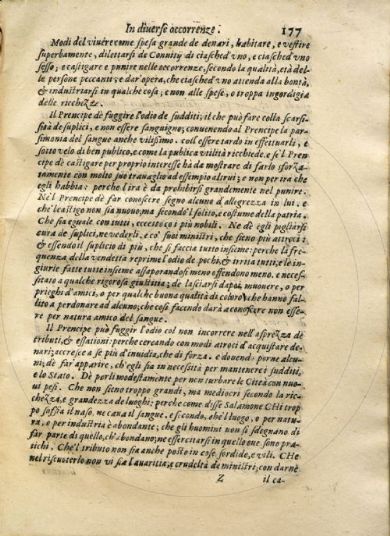 In diverse occorrenze. 177
Modi del viuere come spesa grande de denari, habitare, e vestire
superbamente, dilettarsi de Conuity di ciasched'vno, e ciasched'vno
sesso; e castigare e punire nelle occorrenze, secondo la qualità, età del-
le persone peccanti; e dar opera, che ciasched'vno attenda alla bontà,
& industriarsi in qualche cosa; e non alle spese, o troppa ingordigia
delle ricchezze.
Il Prencipe dè fuggire l'odio de sudditi; il che può fare colla scarsi-
sità de suplici, e non essere sanguigno; conuenendo al Prencipe la par-
simonia del sangue anche vilissimo. coll'essere tardo in effettuarli, e
sotto velo di ben publico, come la publica vtilità ricchiede, e se'l Pren-
cipe dè castigare per proprio interesse hà da mostrare di farlo sforza-
tamente con molto suo trauaglio ad essempio altrui; e non per ira che
egli habbia: perche l'ira è da prohibirsi grandemente nel punire.
Nè'l Prencipe dè far conoscere segno alcuno d'allegrezza in lui. e
che'l castigo non sia nuouo; ma secondo'l solito, e costume della patria.
Che sia eguale con tutti, eccetto co i più nobili. Ne dè egli pigliarsi
cura de suplici, ne vederli. e co' suoi ministri, che sieno più atroci:
& essendo il suplicio di più, che si faccia tutto insieme; perche la fre-
quenza della vendetta reprime l'odio de pochi, & irrita tutti; e le in-
giurie fatte tutte insieme assaporandosi meno offendono meno. e neces-
sitato a qualche rigorosa giustitia; de lasciarsi dapoi, muouere, o per
prieghi d'amici, o per qualche buona qualità di coloro, che hanno fal-
lito a perdonare ad alcuno; che così facendo darà a conoscere non esse-
re per natura amico del sangue.
Il Prencipe può fuggir l'odio col non incorrere nell'asprezza de
tributi, & essationi: perche cercando con modi atroci d'acquistare de-
nari; accresce a se più d'inuidia, che di forza. e douendo porne alcu-
ni; de far apparire, ch'egli sia in necessità per mantenere i sudditi,
e lo Stato. Dè porli modestamente per non turbare le Città con nuo-
ui pesi. Che non sieno troppo grandi, ma mediocri secondo la ric-
chezza, e grandezza de luoghi; perche come disse Salamone CHi tropo
po soffia il naso, ne caua il sangue. e secondo, che'l luogo, o per natu-
ra, o per industria è abondante; che gli huomini non si sdegnano di
far parte di quello, ch'abondano; ne essercitarsi in quello oue sono pra-
tichi. Che'l tributo non sia anche posto in cose sordide, e vili. CHe
nel riscuoterlo non vi sia l'auaritia, e crudeltà de ministri; con darnè
Z il ca-